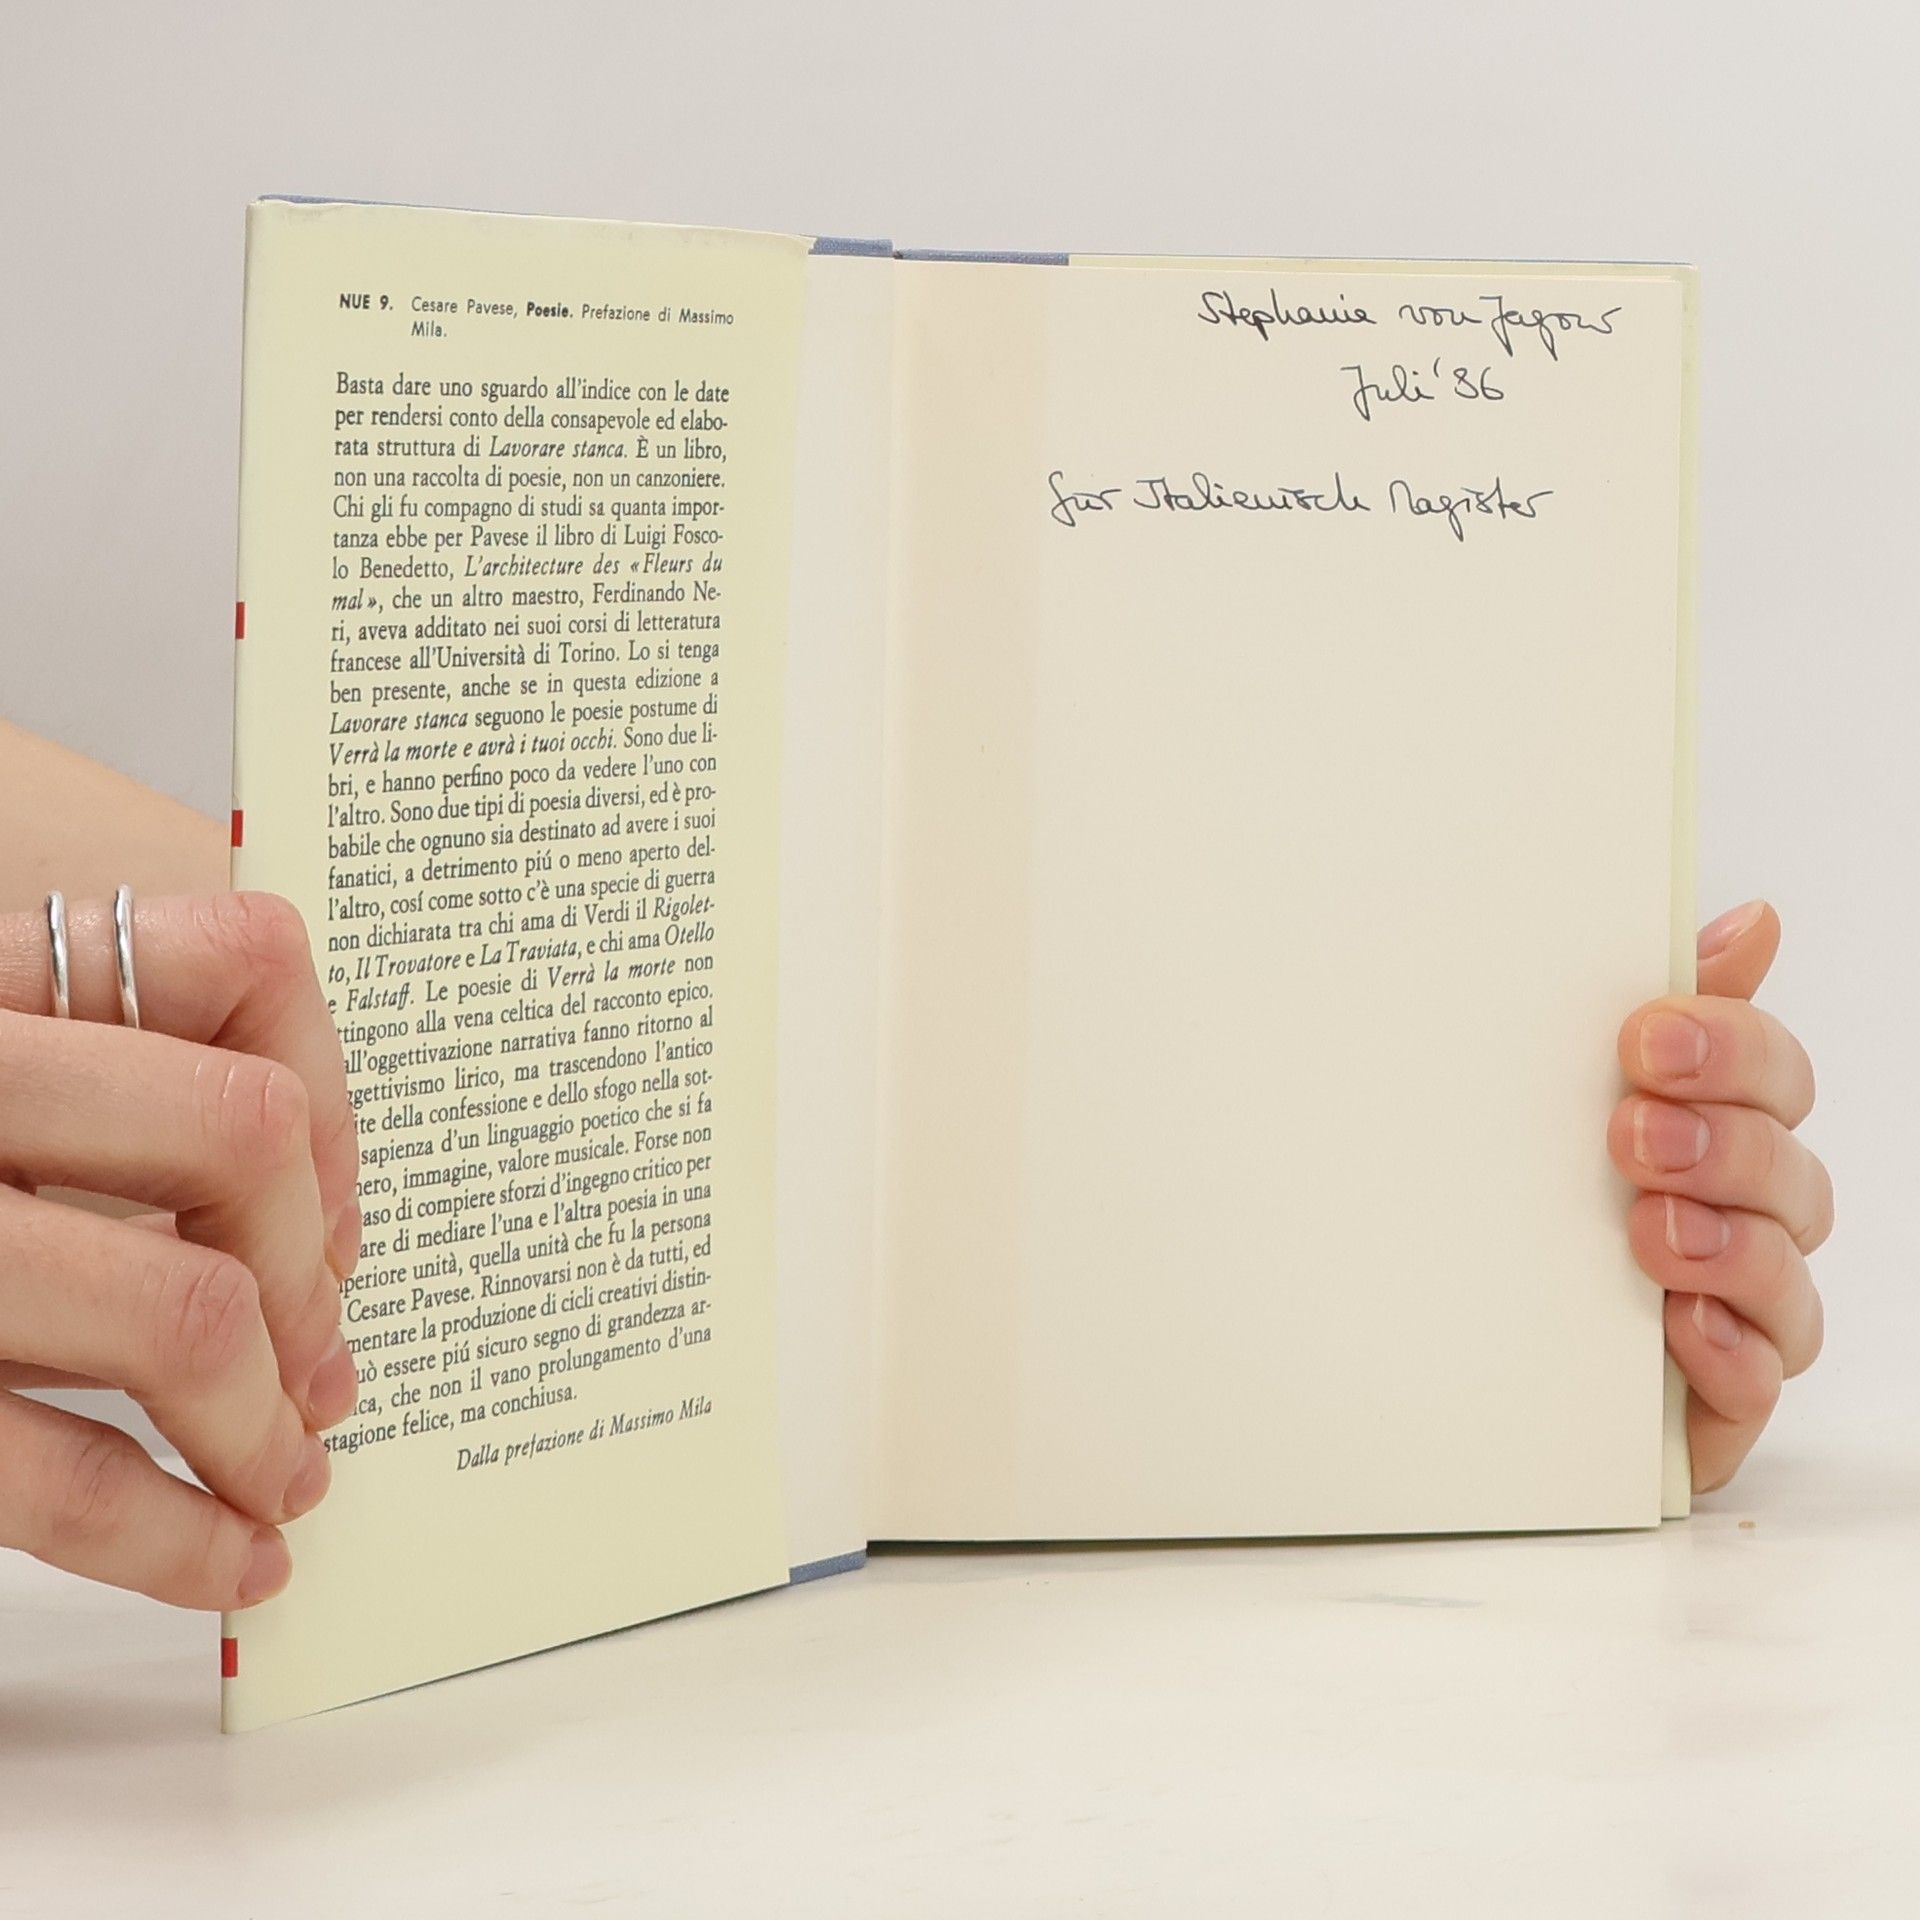 NUE 9. Cesare Pavese, Poesie. Prefazione di Massimo
Mila.
Basta dare uno sguardo all'indice con le date
per rendersi conto della consapevole ed elabo-
rata struttura di Lavorare stanca. È un libro,
non una raccolta di poesie, non un canzoniere.
Chi gli fu compagno di studi sa quanta impor-
tanza ebbe per Pavese il libro di Luigi Fosco-
lo Benedetto, L'architecture des «Fleurs du
mal», che un altro maestro, Ferdinando Ne-
ri, aveva additato nei suoi corsi di letteratura
francese all'Università di Torino. Lo si tenga
ben presente, anche se in questa edizione a
Lavorare stanca seguono le poesie postume di
Verrà la morte e avrà i tuoi occhi. Sono due li-
bri, e hanno perfino poco da vedere l'uno con
l'altro. Sono due tipi di poesia diversi, ed è pro-
babile che ognuno sia destinato ad avere i suoi
fanatici, a detrimento piú o meno aperto del-
l'altro, cosí come sotto c'è una specie di guerra
non dichiarata tra chi ama di Verdi il Rigolet-
to, Il Trovatore e La Traviata, e chi ama Otello
e Falstaff. Le poesie di Verrà la morte non
ttingono alla vena celtica del racconto epico.
all'oggettivazione narrativa fanno ritorno al
ggettivismo lirico, ma trascendono l'antico
ite della confessione e dello sfogo nella sot-
sapienza d'un linguaggio poetico che si fa
nero, immagine, valore musicale. Forse non
aso di compiere sforzi d'ingegno critico per
are di mediare l'una e l'altra poesia in una
periore unità, quella unità che fu la persona
Cesare Pavese. Rinnovarsi non è da tutti, ed
mentare la produzione di cicli creativi distin-
uò essere piú sicuro segno di grandezza ar-
ica, che non il vano prolungamento d'una
stagione felice, ma conchiusa.
Dalla prefazione di Massimo Mila
Stephanie von Jagow
Juli '86
für Italienisch Magister